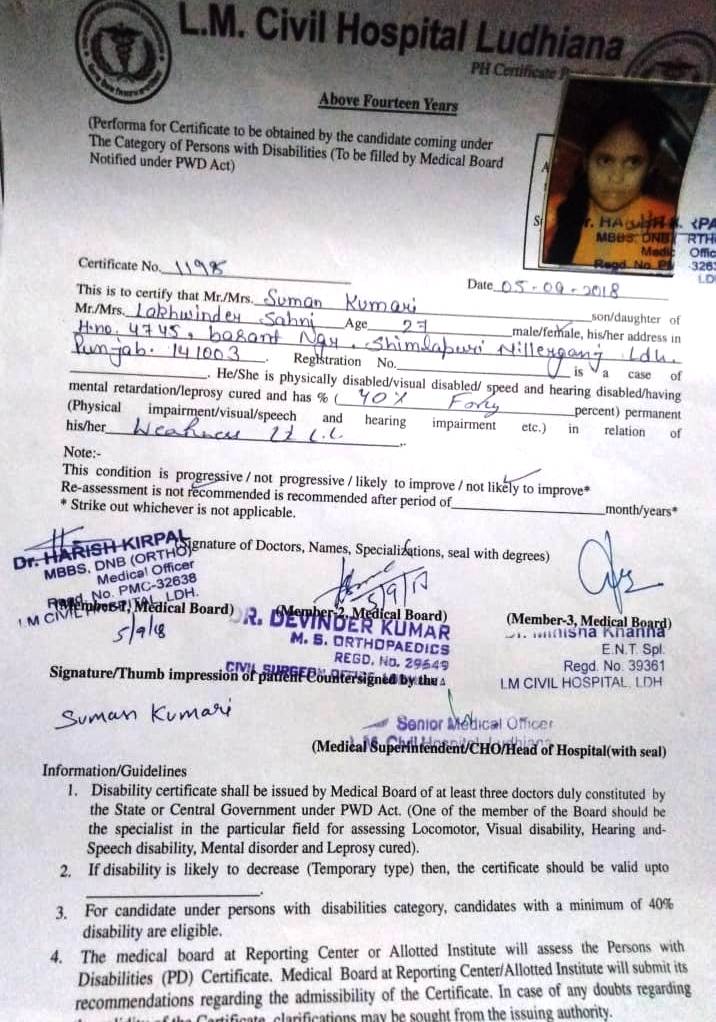 L.M. Civil Hospital Ludhiana
PH Certificate
Above Fourteen Years
(Performa for Certificate to be obtained by the candidate coming under
The Category of Persons with Disabilities (To be filled by Medical Board
Notified under PWD Act)
MBBS. DNB RTH
Medic Offic
Regd. No. P 3263
LD
Certificate No. 1198
Date 05-09-2018
This is to certify that Mr./Mrs. Suman Kumari son/daughter of
Mr./Mrs. Lakhwinder Sahni Age 27 male/female, his/her address in
H.no. 4745, basant Ngr, Shimlapuri Ldh.
Punjab. 141003. Registration No. is a case of
. He/She is physically disabled/visual disabled/ speed and hearing disabled/having
mental retardation/leprosy cured and has % ( 40% Forty percent) permanent
(Physical impairment/visual/speech and hearing impairment etc.) in relation of
his/her Weakness Lt L.L.
Note:-
This condition is progressive / not progressive / likely to improve / not likely to improve*
Re-assessment is not recommended is recommended after period of month/years*
* Strike out whichever is not applicable.
(Signature of Doctors, Names, Specializations, seal with degrees)
Dr. HARISH KIRPAL
MBBS, DNB (ORTHO)
Medical Officer
Regd. No. PMC-32638
L.M CIVIL HOSPITAL, LDH.
(Member-1, Medical Board)
5/9/18
5/9/18
(Member-2, Medical Board)
DR. DEVINDER KUMAR
M. S. ORTHOPAEDICS
REGD. No. 29649
(Member-3, Medical Board)
Khanna
E.N.T. Spl.
Regd. No. 39361
LM CIVIL HOSPITAL. LDH
Signature/Thumb impression of patient Countersigned by the
Suman Kumari
Senior Medical Officer
L.M. Civil Hospital Ludhiana
(Medical Superintendent/CHO/Head of Hospital(with seal)
Information/Guidelines
1. Disability certificate shall be issued by Medical Board of at least three doctors duly constituted by
the State or Central Government under PWD Act. (One of the member of the Board should be
the specialist in the particular field for assessing Locomotor, Visual disability, Hearing and-
Speech disability, Mental disorder and Leprosy cured).
2. If disability is likely to decrease (Temporary type) then, the certificate should be valid upto
.
3. For candidate under persons with disabilities category, candidates with a minimum of 40%
disability are eligible.
4. The medical board at Reporting Center or Allotted Institute will assess the Persons with
Disabilities (PD) Certificate. Medical Board at Reporting Center/Allotted Institute will submit its
recommendations regarding the admissibility of the Certificate. In case of any doubts regarding
of the Certificate, clarifications may be sought from the issuing authority.